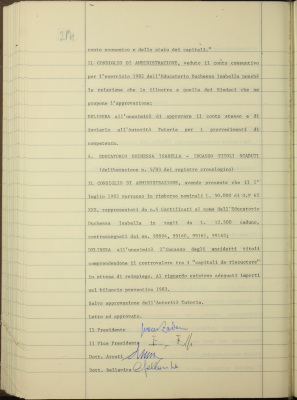 conto economico e dello stato dei capitali."
IL CONSIGLIO DI AMMINISTRAZIONE, veduto il conto consuntivo
per l'esercizio 1982 dell'Educatorio Duchessa Isabella nonchè
la relazione che lo illustra e quella dei Sindaci che ne
propone l'approvazione;
DELIBERA all'unanimità di approvare il conto stesso e di
inviarlo all'Autorità Tutoria per i provvedimenti di
competenza.
EDUCATORIO DUCHESSA ISABELLA - INCASSO TITOLI SCADUTI
(deliberazione n. del registro cronologico)
IL CONSIGLIO DI AMMINISTRAZIONE, avendo presente che il 1°
luglio 1983 verranno in rimborso nominali L. 50.000
rappresentati da n. 4 certificati al nome dell'Educatorio
Duchessa Isabella in tagli da L. 12.500 cadauno,
contrassegnati dai nn.
DELIBERA all'unanimità l'incasso degli anzidetti titoli
comprendendone il controvalore tra i "capitali da rinvestire"
in attesa di reimpiego. Al riguardo saranno adeguati importi
sul bilancio preventivo 1983.
Salvo approvazione dell'Autorità Tutoria.
Letto ed approvato.
Il Presidente
Il Vice Presidente
Dott. Avosti
Dott. Bellavita